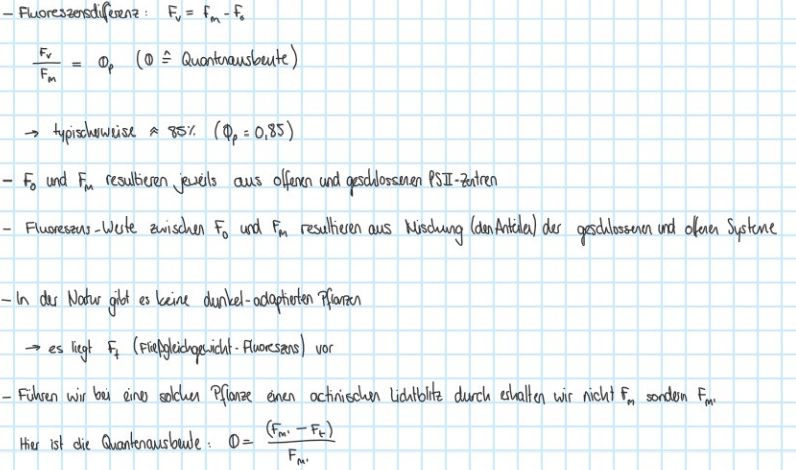 - Fluoreszensdiferenz: Fv = Fm - F0
Fv/Fm = Φp (Φ ≙ Quantenausbeute)
→ typischerweise ≈ 85% (Φp = 0,85)
- F0 und Fm resultieren jeweils aus offenen und geschlossenen PSII-Zentren
- Fluoreszens-Werte zwischen F0 und Fm resultieren aus Mischung (den Anteilen) der geschlossenen und offenen Systeme
- In der Natur gibt es keine dunkel-adaptierten Pflanzen
→ es liegt Ft (Fließgleichgewicht-Fluoreszens) vor
- Führen wir bei einer solchen Pflanze einen actinischen Lichtblitz durch erhalten wir nicht Fm sondern Fm'
Hier ist die Quantenausbeute: Φ = (Fm' - Ft)/Fm'